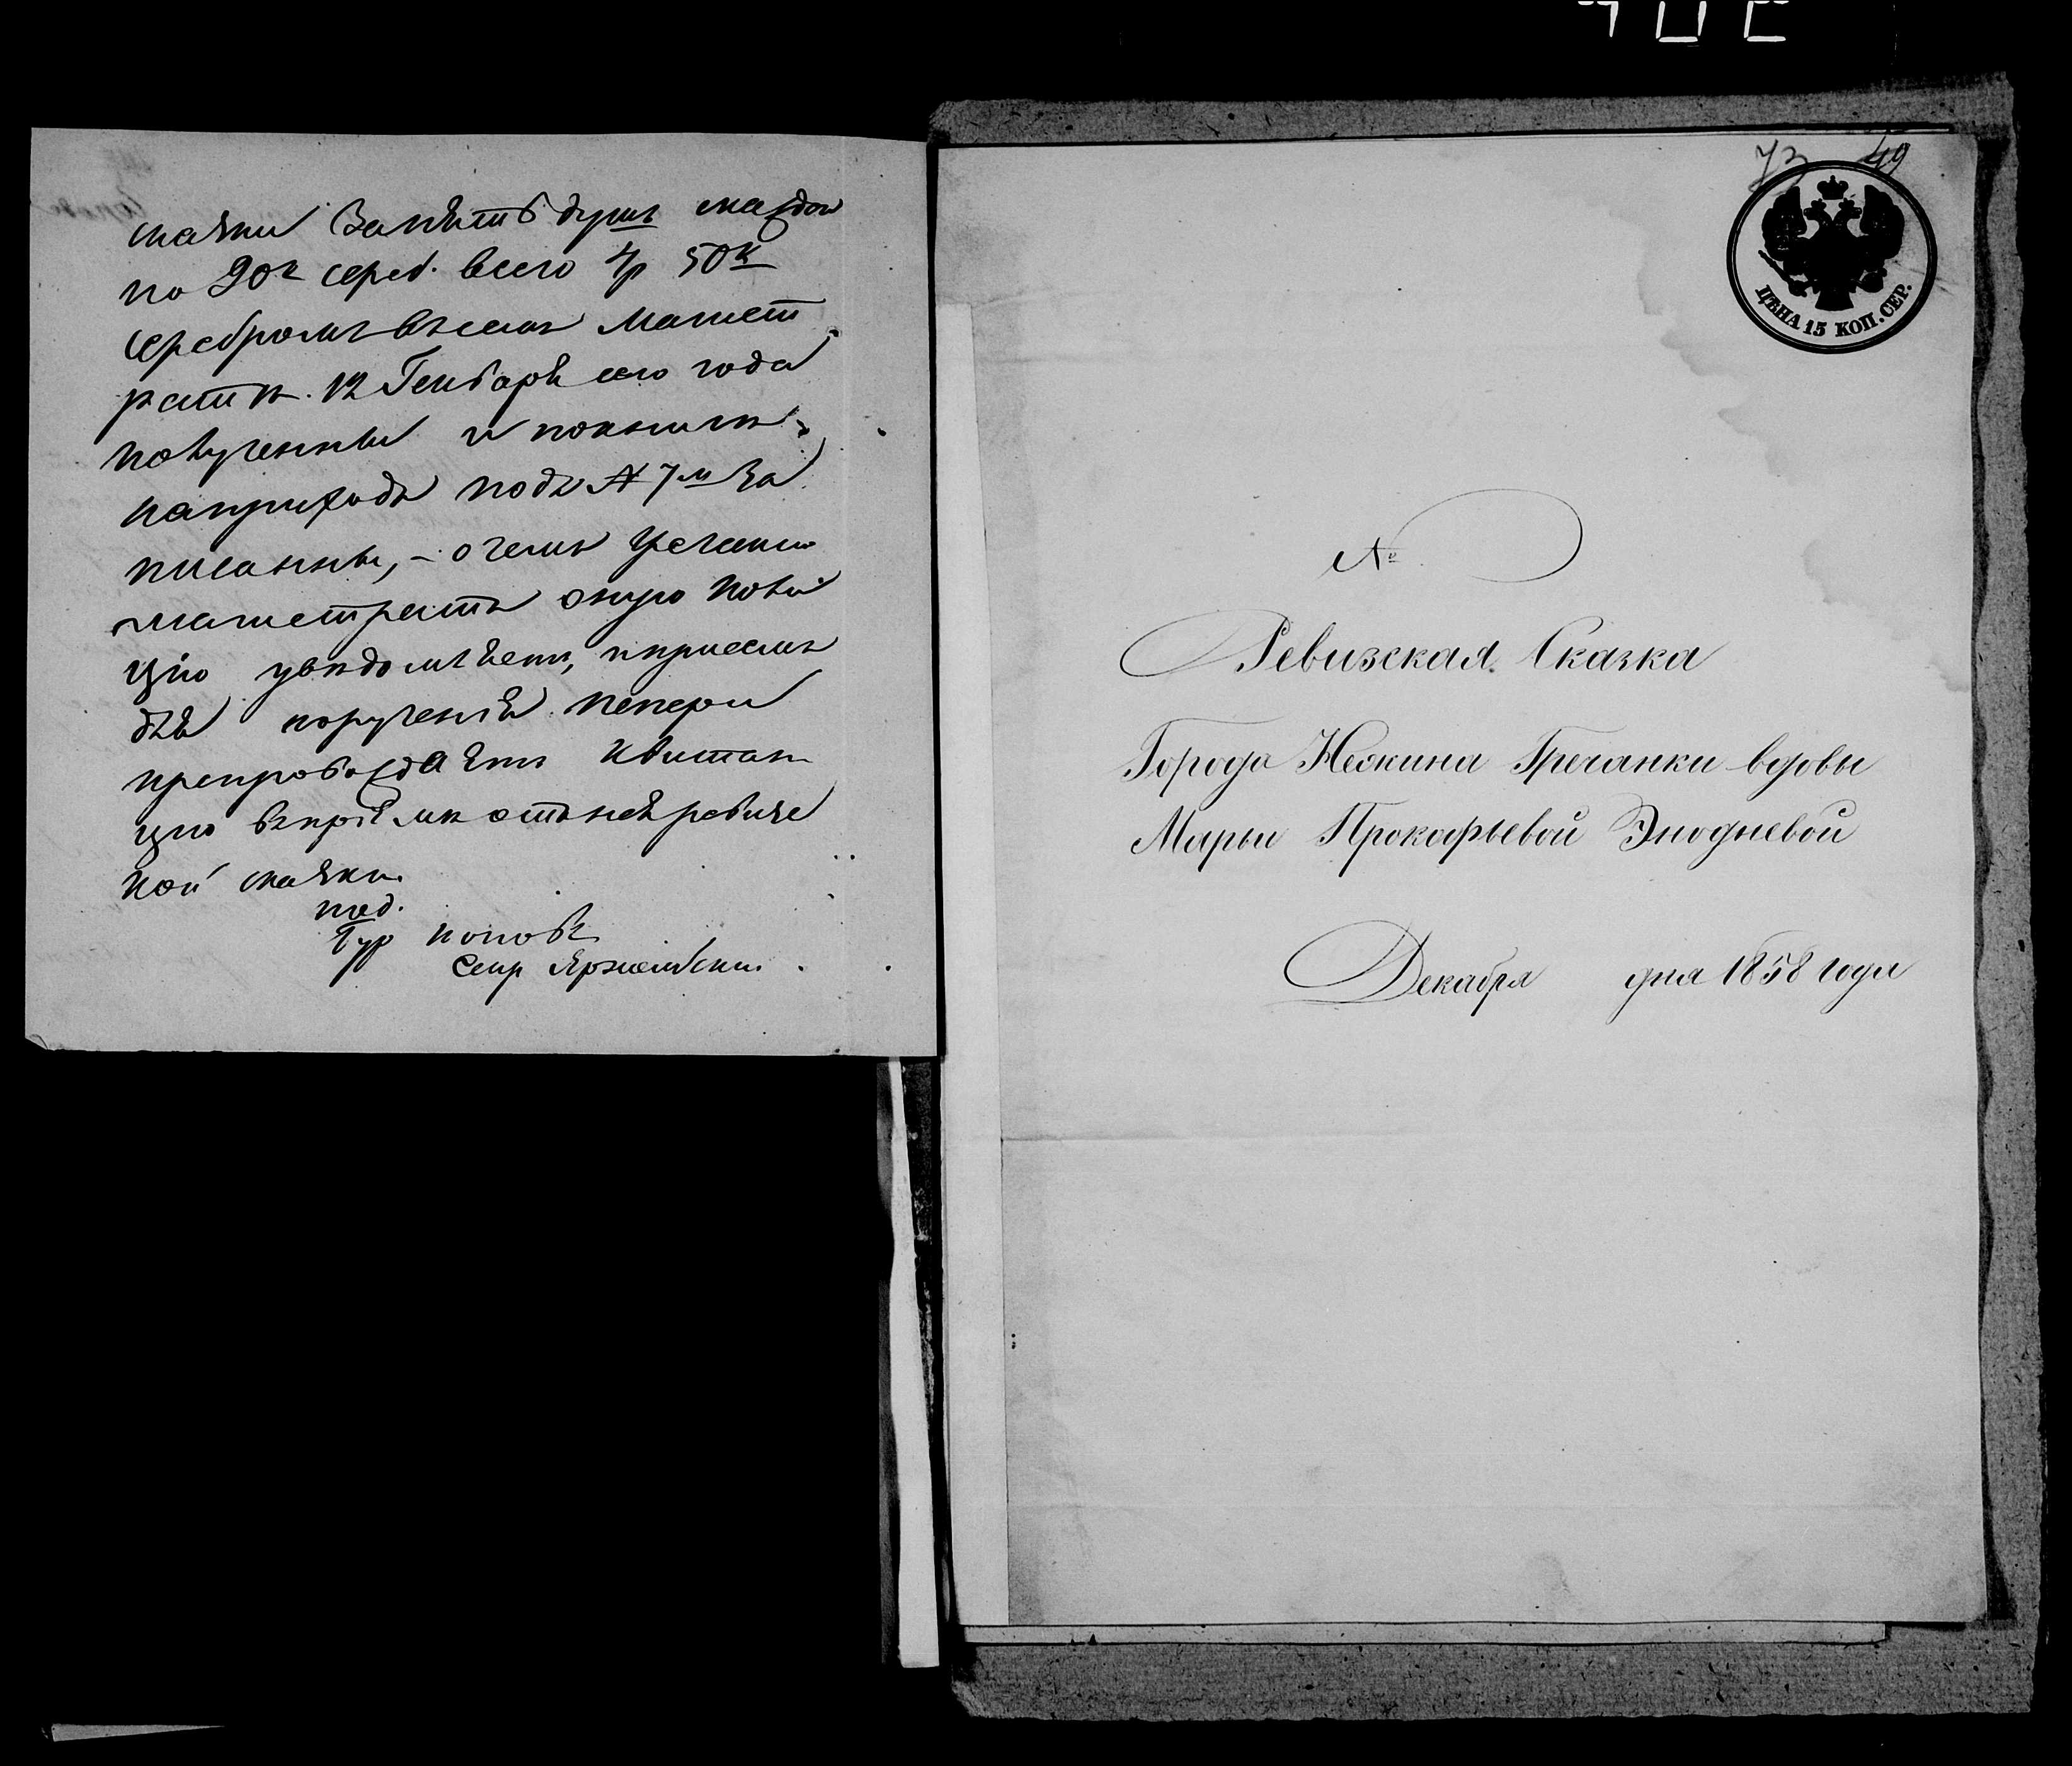 сказки за пять душъ каждой
по 90к сереб. всего 4р 50к
серебромъ въ семъ магист
ратѣ 12 Генваря сего года
полученны и покнигѣ
наприходъ подъ № 7м за
писанны, – о чемъ Греческий
магистратъ оную поли
цію увѣдомляетъ, и присемъ
для порученія
препровождаетъ квитан
цію въ пріемѣ отъ ней ревизс
кой сказки.
под.
Бур Поповъ
Секр
73 49
ЦѢНА 15 КОП. СЕР.
№
Ревизская Сказка
Города Нежина Гречанки вдовы
Марьи Прокофьевой Энодневой
Декабря дня 1858 года